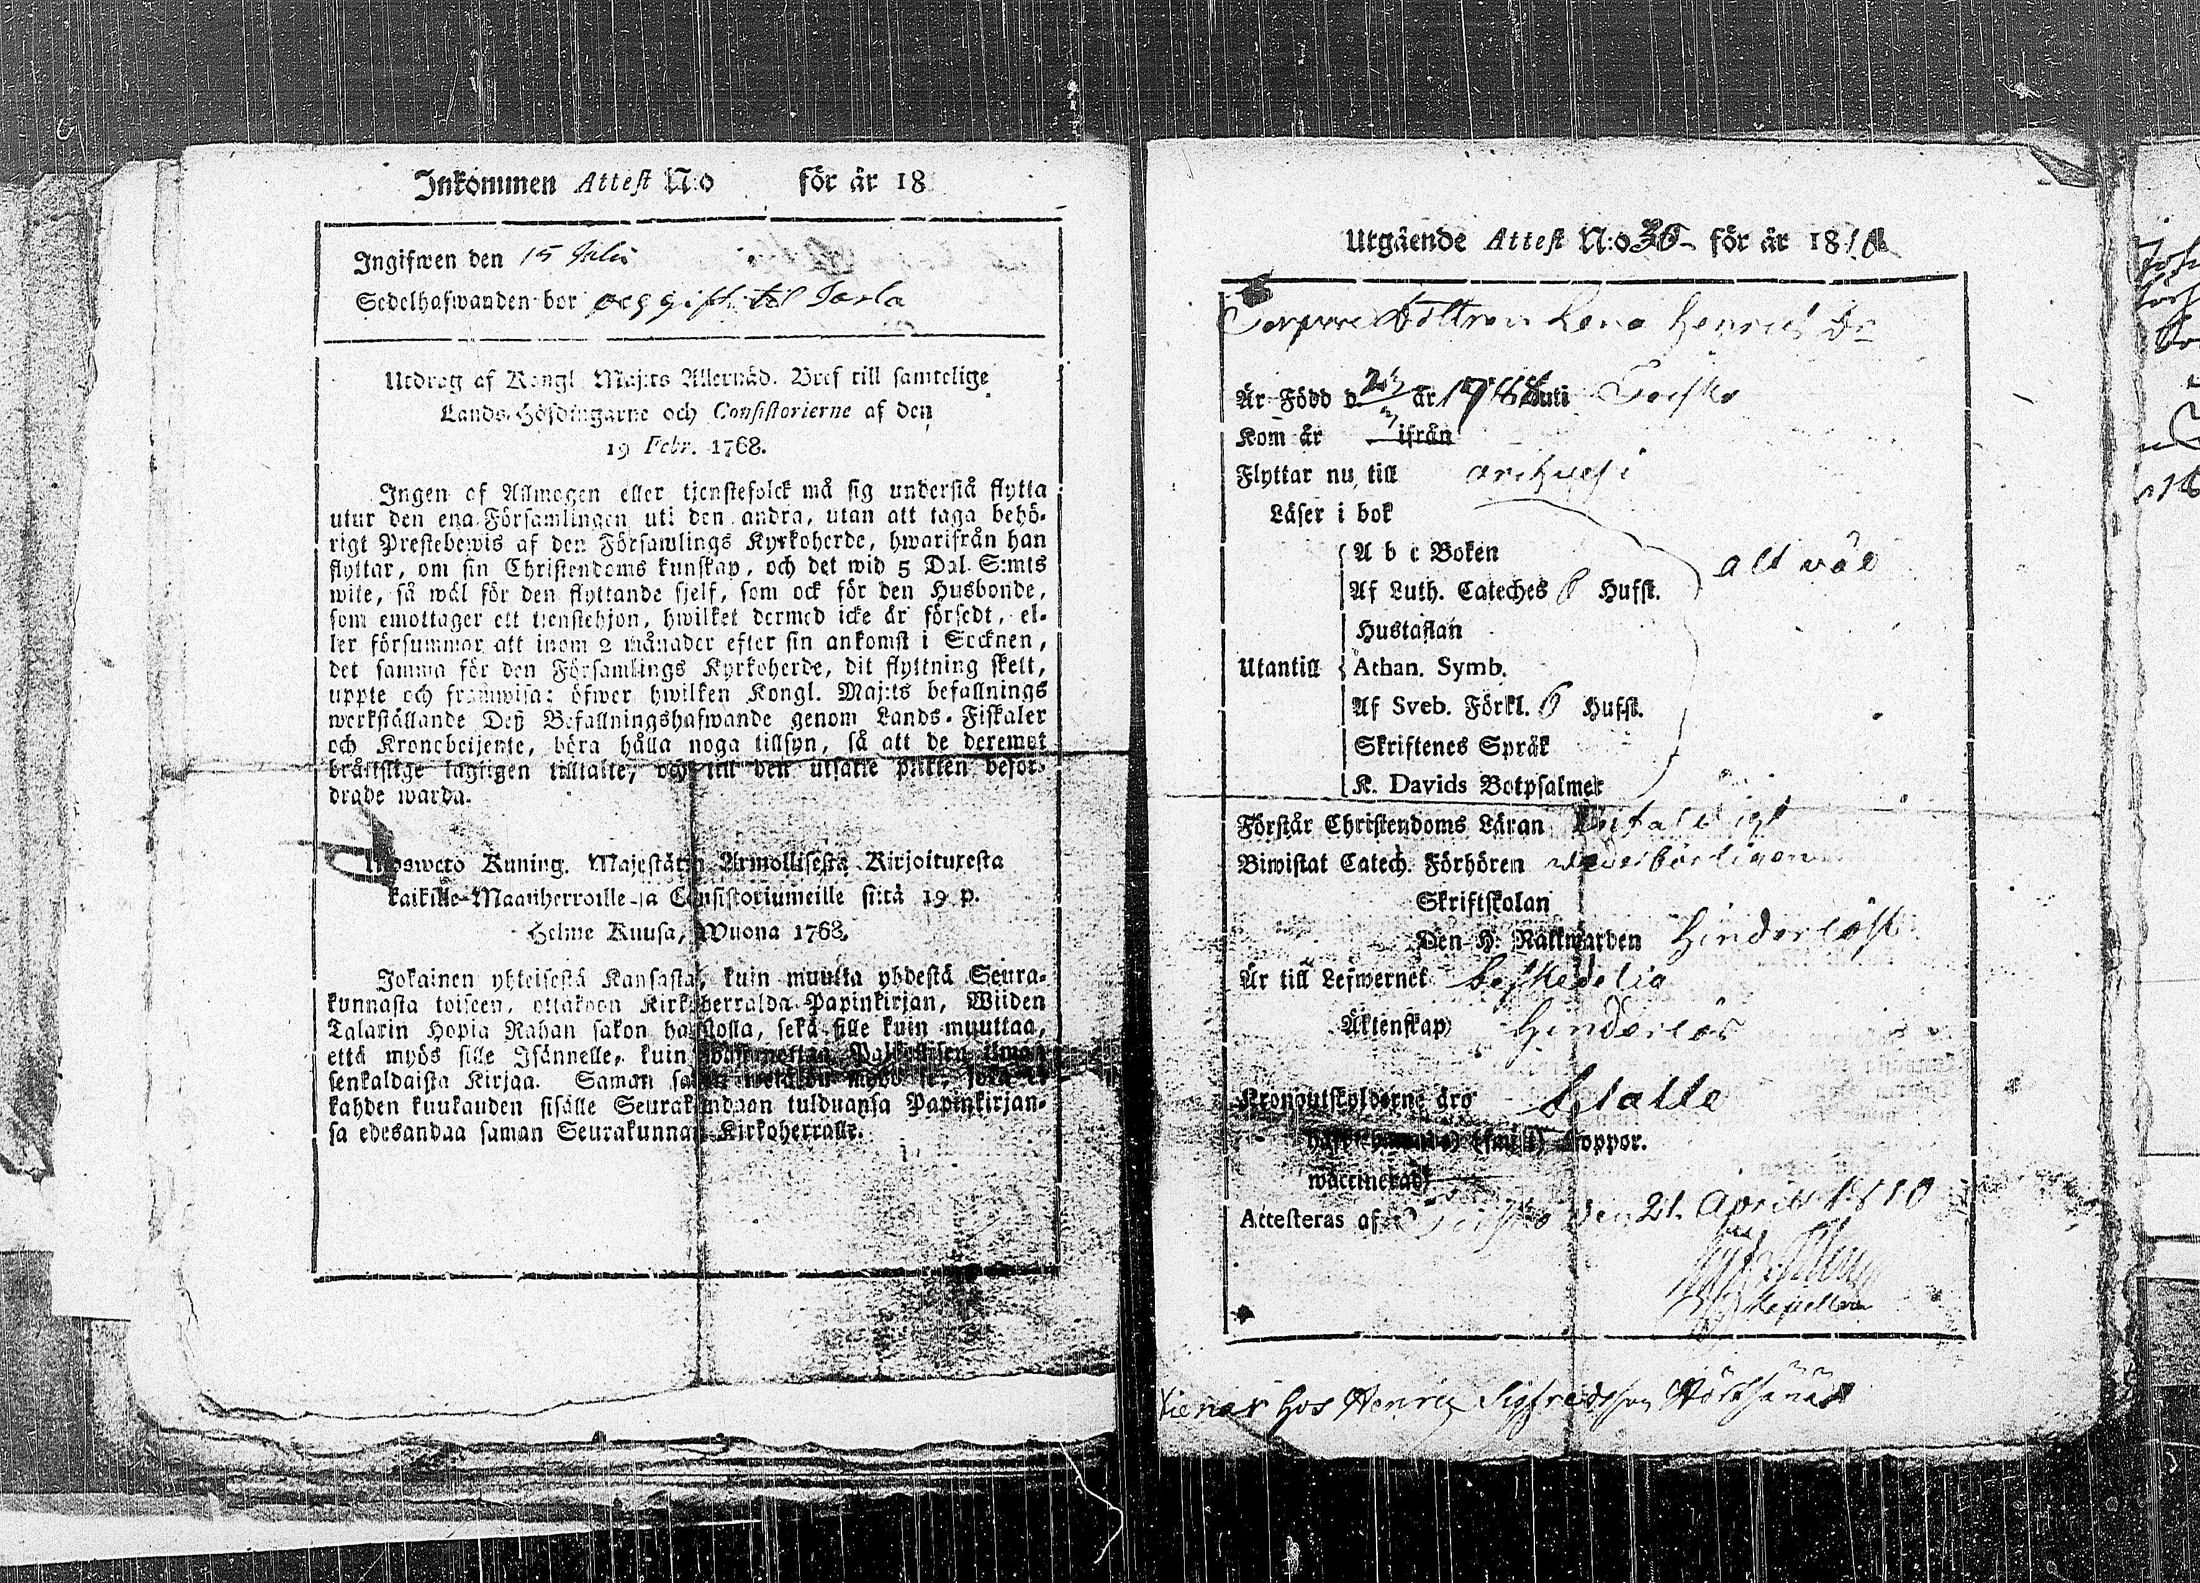 Inkommen Attest N:o för år 18
Ingifwen den 15 Julii
Sedelhafwanden bor och gift til Tarla
Utdrag af Kongl. Maj:ts Allernåd. Bref till samtelige
Lands-Höfdingarne och Consistorierne af den
19 Febr. 1768.
Ingen af Allmogen eller tjenstefolck må sig understå flytta
utur den ena Församlingen uti den andra, utan att taga behö-
rigt Prestebewis af den Församlings Kyrkoherde, hwarifrån han
flyttar, om sin Christendoms kunskap, och det wid 5 Dal. S:mts
wite, så wäl för den flyttande sjelf, som ock för den Husbonde,
som emottager ett tienstehjon, hwilket dermed icke är försedt, el-
ler försummar att inom 2 månader efter sin ankomst i Socknen,
det samma för den Församlings Kyrkoherde, dit flyttning skett,
uppte och framwisa: öfwer hwilken Kongl. Maj:ts befallnings
werkställande Deß Befallningshafwande genom Lands-Fiskaler
och Kronobetjente, böra hålla noga tillsyn, så att de deremot
bråttslige lagligen tilltalte, och till den utsatte plikten befor-
drade warda.
Ulosweto Kuning. Majestätin Armollisesta Kirjoituxesta
kaikille Maanherroille ja Consistoriumeille siitä 19 p.
Helme Kuusa, Wuona 1768.
Jokainen yhteisestä Kansasta, kuin muutta yhdestä Seura-
kunnasta toiseen, ottakoon Kirkoherralda Papinkirjan, Wiiden
Talarin Hopia Rahan sakon haastolla, sekä sille kuin muuttaa,
että myös sille Isännelle, kuin Palkollisen ilman
senkaldaista Kirjaa. Saman
kahden kuukauden sisälle Seurakundaan tulduansa Papinkirjan-
sa edesandaa saman Seurakunnan Kirkoherralle.
Utgående Attest N:o 36 för år 1810
Lena Henrics Dr
Är Född d. år 1788 uti Töfsko
Kom år ifrån
Flyttar nu till
Läser i bok
A b c Boken
Af Luth. Cateches 6 Hufst.
Hustaflan
Utantill Athan. Symb.
alt väl
Af Sveb. Förkl. 6 Hufst.
Skriftenes Språk
K. Davids Botpsalmer
Förstår Christendoms Läran
Biwistat Catech. Förhören
Skriftskolan
Den H. Nattwarden Hinderlöst
Är till Lefwernet beskedelig
Äktenskap Hinderlös
Kronoutskylderne äro betalte
koppor.
waccinerad
Attesteras af den 21. April 1810
Kapellan
tienar hos Henric Sigfredsson